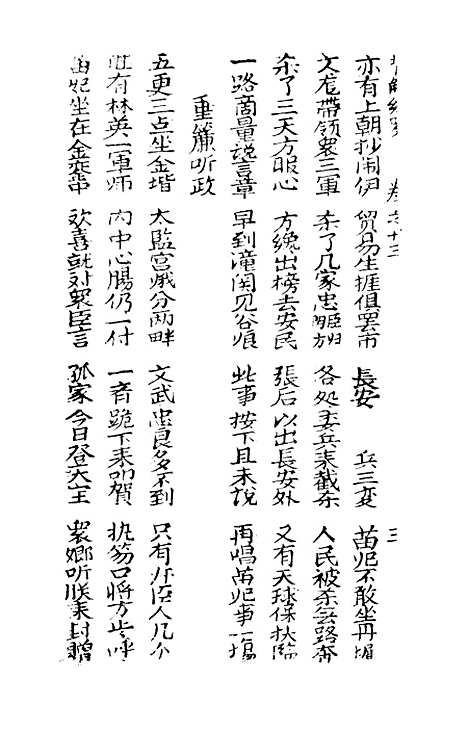 卷之十三 三
亦有上朝抄闹伊 贸易生捱俱罢市 長安 兵三変 苗妃不敢坐丹墀
文龙帶领衆三軍 杀了几家忠 各处妻兵来截杀 人民被杀云路奔
杀了三天方服心 方纔出榜去安民 張后以出長安外 又有天球保扶臨
一路商量説言章 早到潼関见谷痕 此事按下且未説 再唱苗妃事一塲
垂簾听政
五更三点坐金堦 太監宫娥分两畔 文武忠良多不到 只有奸臣人几个
有林英一軍师 内中心腸仍一付 一斉跪下来叩賀 执笏口將万岁呼
苗妃坐在金銮 欢喜就对衆臣言 孤家今日登大宝 衆卿听朕来封贈